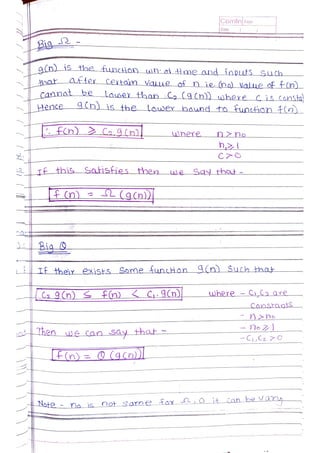 Big Ω -
g(n) is the function of time and inputs such
that after certain value of n ie (n₀) value of f(n)
cannot be lower than C₂ (g(n)) where C is
Hence g(n) is the lower bound to function f(n)
∴ f(n) ≥ C₂.g(n) where n > n₀
n₀ ≥ 1
C > 0
If this satisfies then we say that -
f(n) = Ω (g(n))
Big Θ
If their exists some function g(n) such that
C₂ g(n) ≤ f(n) ≤ C₁.g(n) where - C₁, C₂ are
constants
- n > n₀
- n₀ ≥ 1
- C₁, C₂ > 0
Then we can say that -
f(n) = Θ (g(n))
Note - n₀ is not same for Ω, O it can be vary